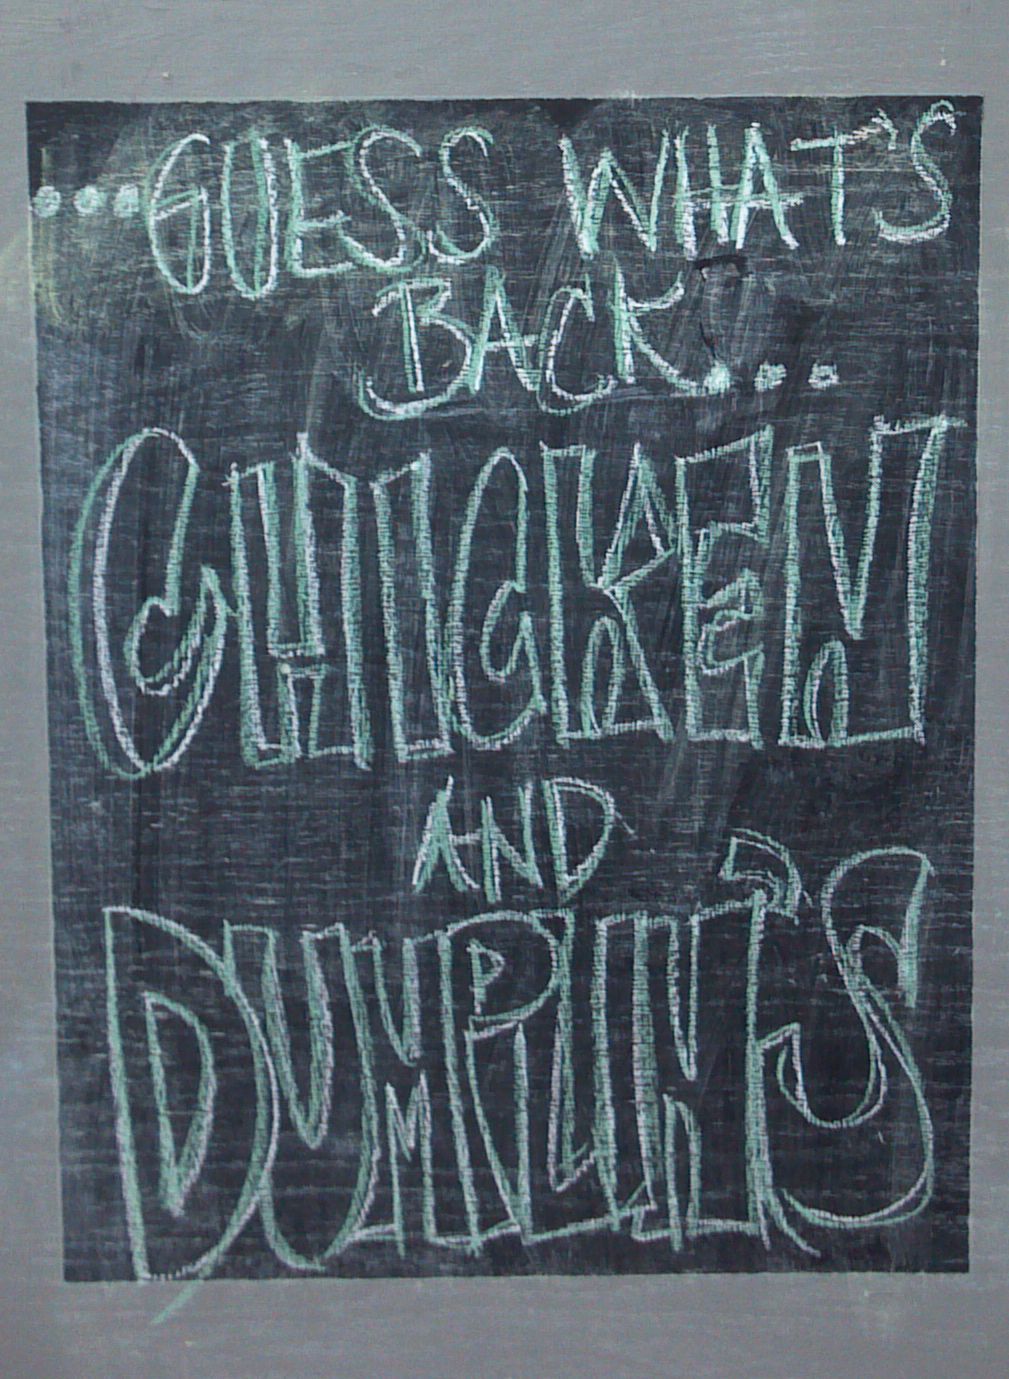 ...GUESS WHAT'S
BACK...
CHICKEN
AND
DUMPLIN'S